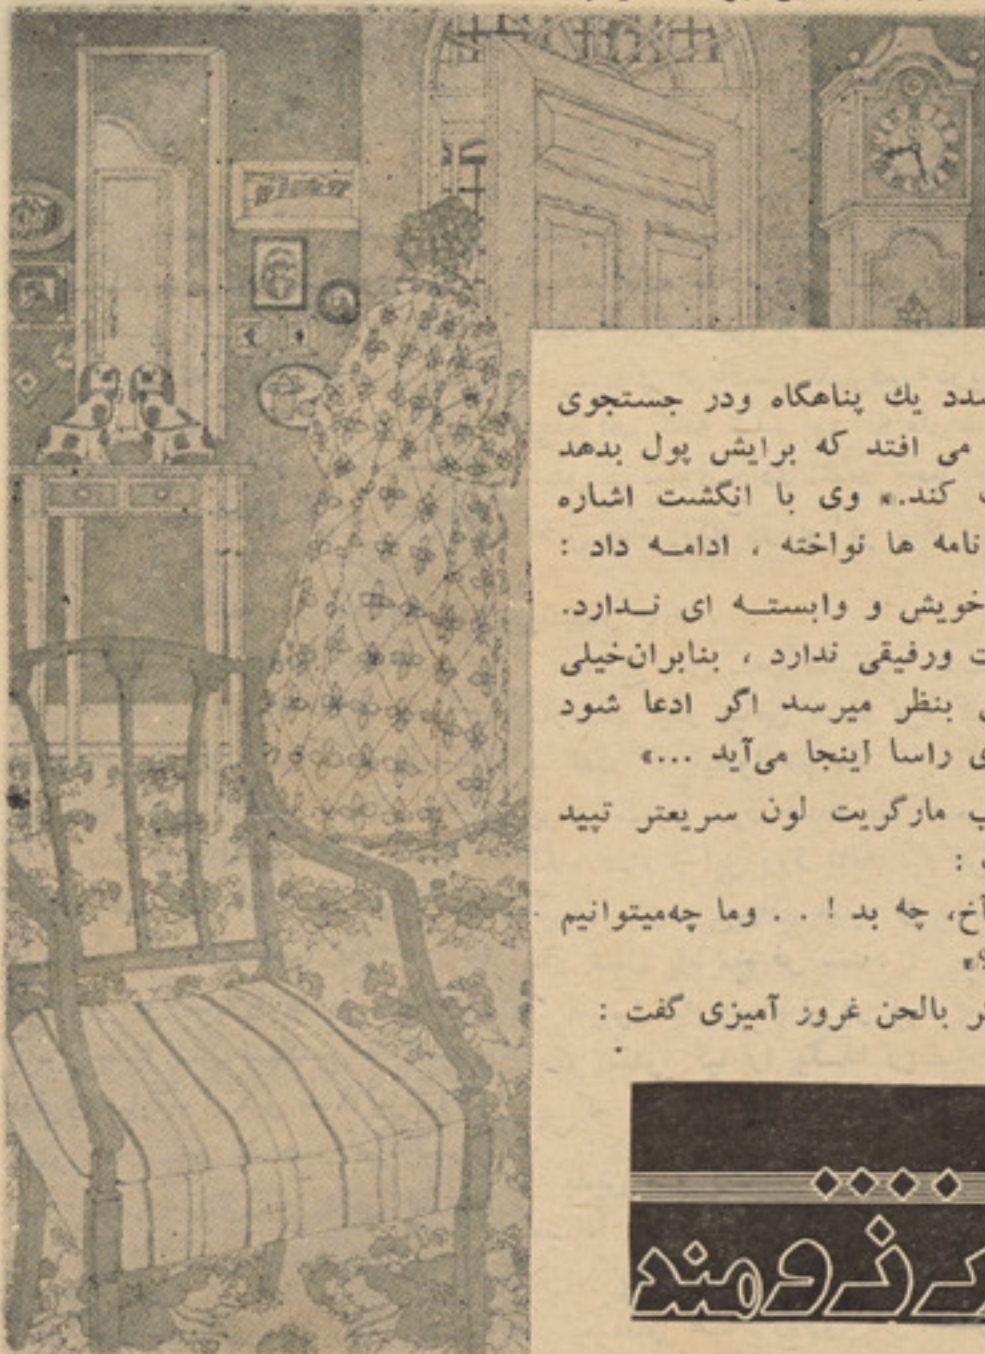 سدد يك پناهگاه ودر جستجوى
مى افتد كه برايش پول بدهد
كند.» وى با انگشت اشاره
نامه ها نواخته ، ادامه داد :
خويش و وابسته اى ندارد.
ورفيقى ندارد ، بنابران خيلى
بنظر ميرسد اگر ادعا شود
راسا اينجا مى‌آيد ...»
مارگريت لون سريعتر تپيد
:
آخ، چه بد ! . . وما چه ميتوانيم
؟»
بالحن غرور آميزى گفت :